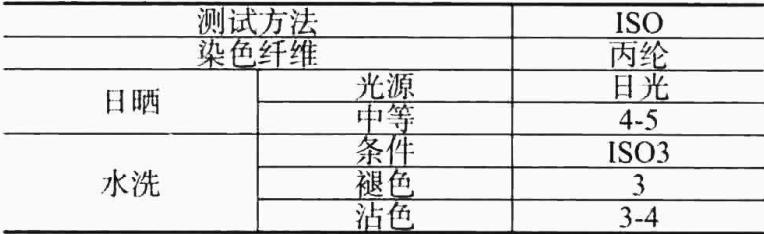 测试方法 ISO
染色纤维 丙纶
日晒 光源 日光
中等 4-5
水洗 条件 ISO3
褪色 3
沾色 3-4